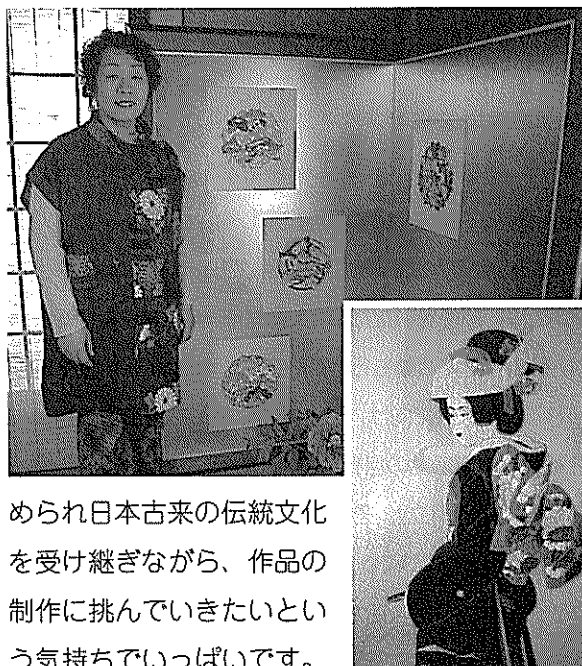 められ日本古来の伝統文化
を受け継ぎながら、作品の
制作に挑んでいきたいとい
う気持ちでいっぱいです。